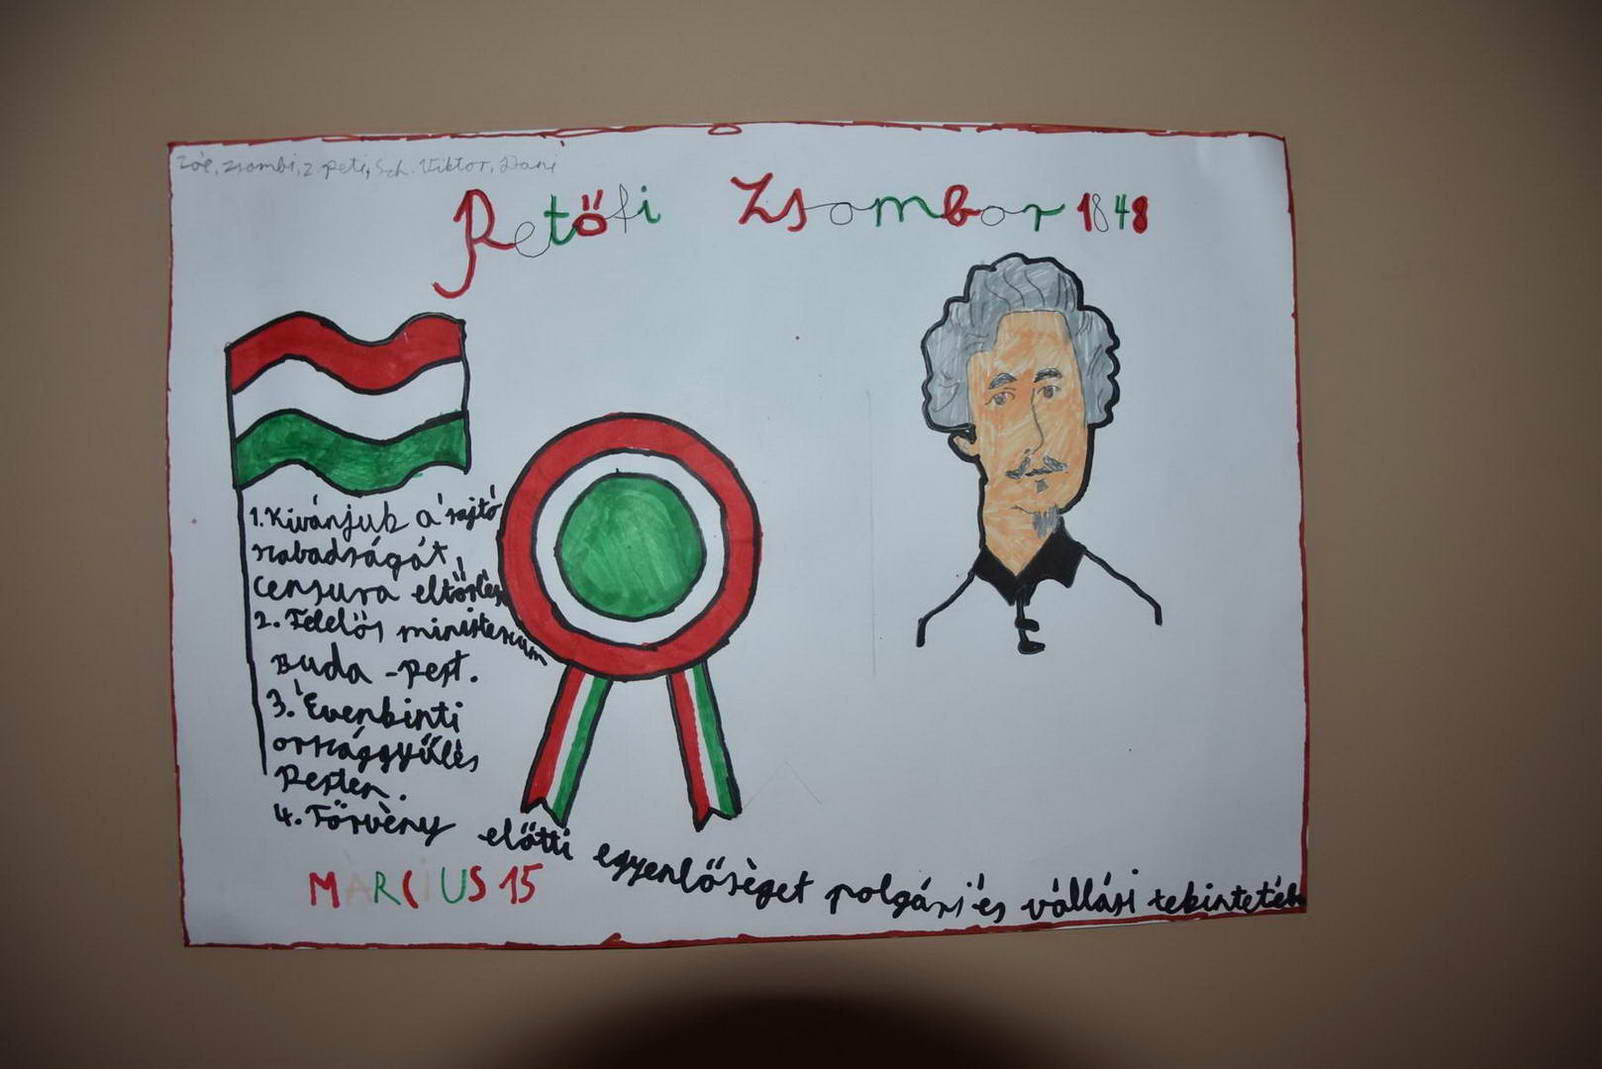 Zóé, Zsombi, Z peti, Sch. Viktor, Dani
Petőfi Zsombor 1848
1. Kivánjuk a sajtó
szabadságát,
Censura eltörlés
2. Felelős ministerium
Buda - Pest.
3. Évenkinti
országgyűlés
Pesten.
4. Törvény előtti egyenlőséget polgári és vállási tekintetéb
MÁRCIUS 15